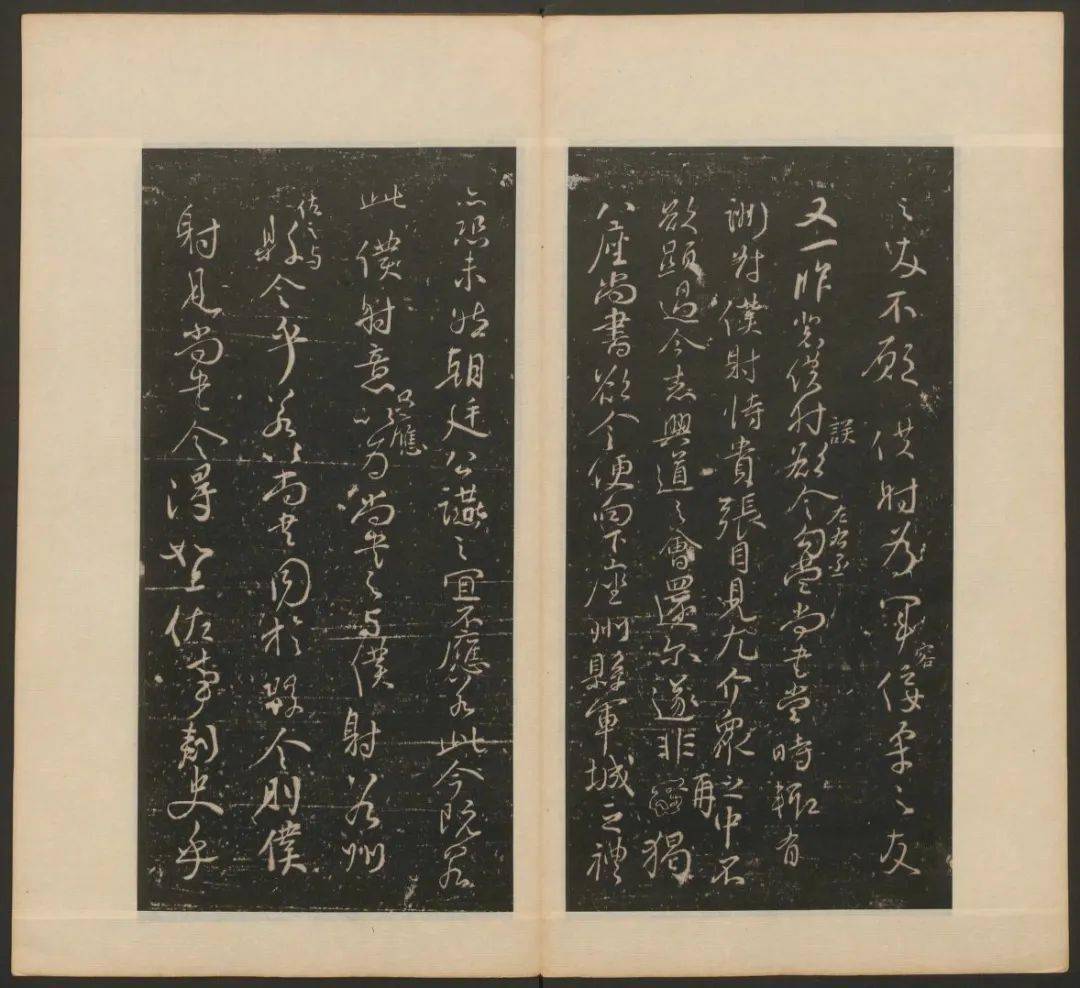 之友不願僕射為軍容佞柔之友
又一昨裴僕射誤欲令左右丞勾當尚書當時輒有
酬對僕射恃貴張目見尤介眾之中不
欲顯過今者興道之會還尔遂非再猲
八座尚書欲令便向下座州縣軍城之禮
亦恐未然朝廷公讌之宜不應若此今既若
此僕射意只應以為尚書之與僕射若州
佐之與縣令乎若以尚書同於縣令則僕
射見尚書令得如上佐事刺史乎